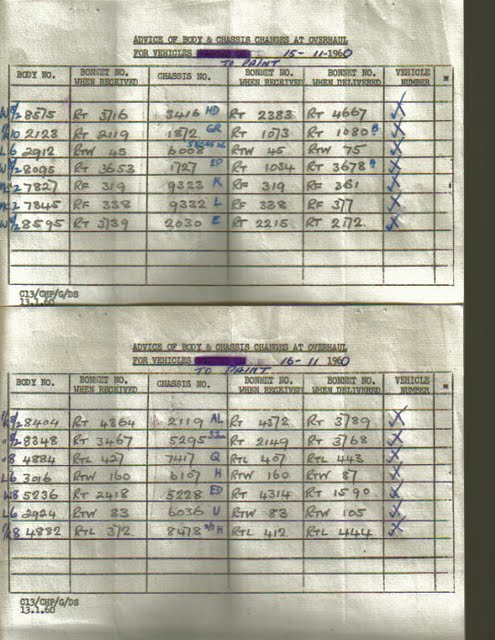 ADVICE OF BODY & CHASSIS CHANGES AT OVERHAUL
FOR VEHICLES 15-11-1960
TO PAINT
BODY NO. BONNET NO. WHEN RECEIVED CHASSIS NO. BONNET NO. WHEN RECEIVED BONNET NO. WHEN DELIVERED VEHICLE NUMBER
8575 RT 3716 3416 HD RT 2383 RT 4667
2123 RT 2119 1872 GR RT 1073 RT 1080 B
L6 2912 RTW 45 6008 RTW 45 RTW 75
8095 RT 3653 1727 EP RT 1034 RT 3678
7827 RF 319 9323 K RF 319 RF 361
7845 RF 338 9332 L RF 338 RF 377
8595 RT 3739 2030 E RT 2215 RT 2172
C13/CHP/G/DS
13.1.60
ADVICE OF BODY & CHASSIS CHANGES AT OVERHAUL
FOR VEHICLES 16-11 1960
TO PAINT
BODY NO. BONNET NO. WHEN RECEIVED CHASSIS NO. BONNET NO. WHEN RECEIVED BONNET NO. WHEN DELIVERED VEHICLE NUMBER
8404 RT 4364 2119 AL RT 4572 RT 3789
8348 RT 3467 5295 RT 2149 RT 3768
4884 RTL 427 7417 Q RTL 407 RTL 443
L6 3016 RTW 160 6107 H RTW 160 RTW 87
5236 RT 2418 5228 ED RT 4314 RT 1590
L6 2924 RTW 83 6036 U RTW 83 RTW 105
4882 RTL 372 8478 H RTL 412 RTL 444
C13/CHP/G/DS
13.1.60